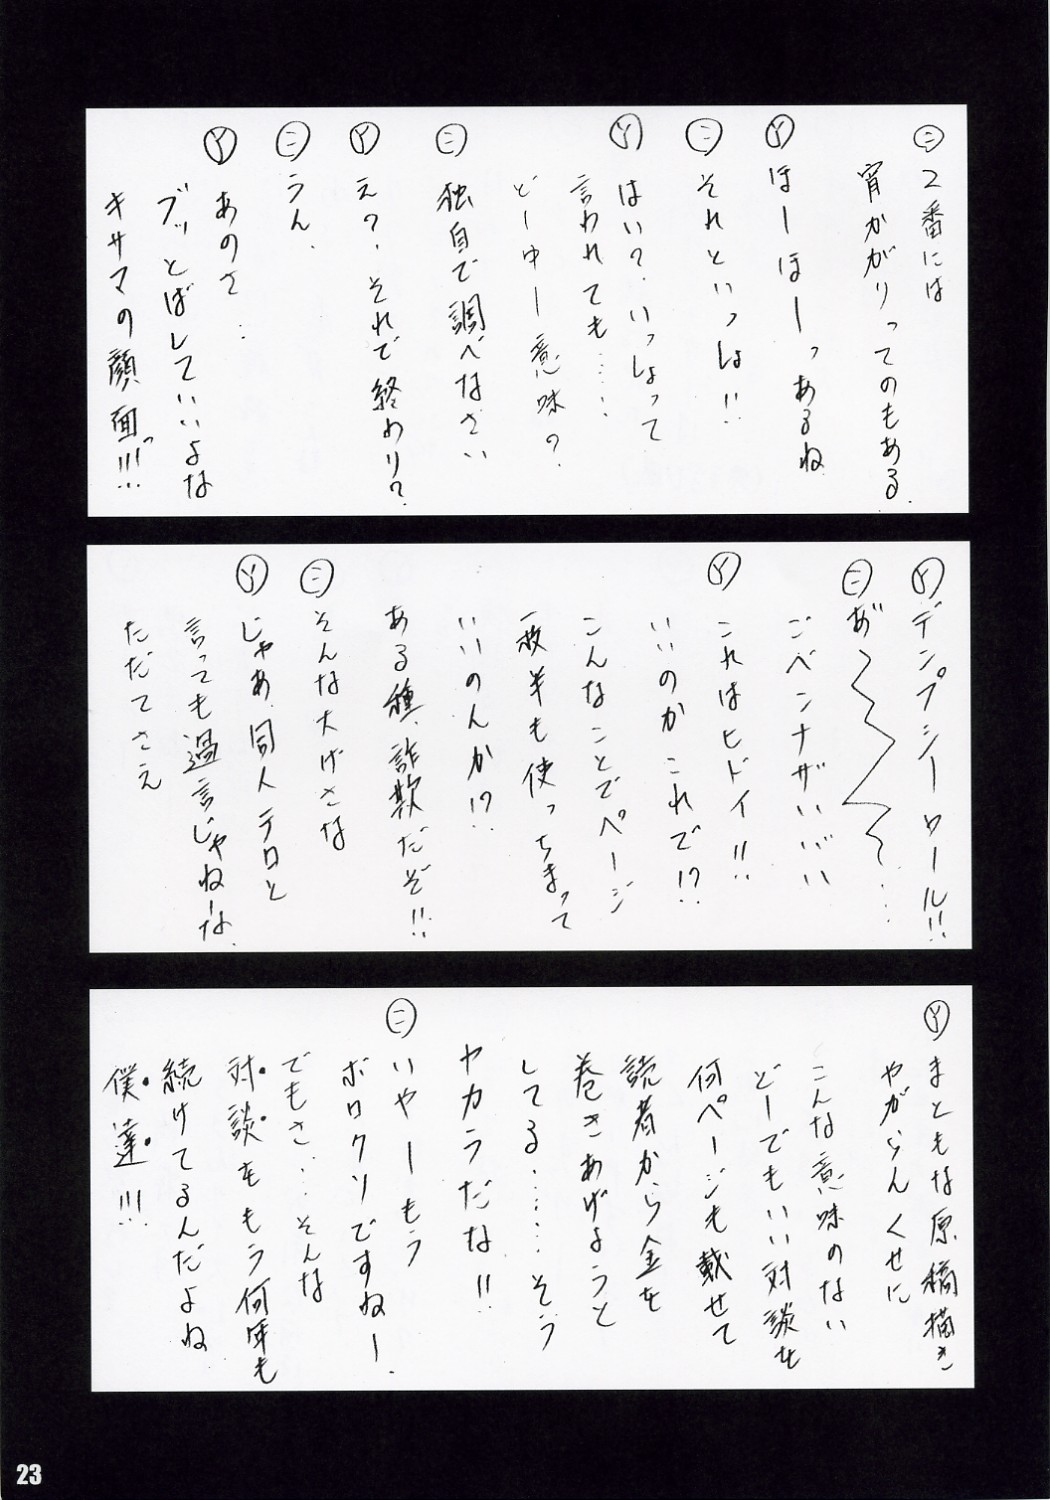 ㊁２番には
宵かがりってのもある.
Ⓨほーほーっあるね
㊁それといっしょ!!
Ⓨはい?いっしょって
言われても……
どーゆー意味?
㊁独自で調べなさい
Ⓨえ?それで終わり?
㊁うん.
Ⓨあのさ…
ブッとばしていいよな
キサマの顔面っ!!!
Ⓨデンプシーロール!!
㊁あ゛〜〜〜〜…
ゴベンナザいいいい
Ⓨこれはヒドイ!!
いいのかこれで!?
こんなことでページ
一枚半も使っちまって
いいのんか!?
ある種、詐欺だぞ!!
㊁そんな大げさな
Ⓨじゃあ同人テロと
言っても過言じゃねーな.
ただてさえ
Ⓨまともな原稿描き
やがらんくせに
こんな意味のない
どーでもいい対談を
何ページも載せて
読者から金を
巻きあげようと
してる……そう
ヤカラだな!!
㊁いやーもう
ボロクソですねー.
でもさ…そんな
対談をもう何年も
続けてるんだよね
僕達!!!
23